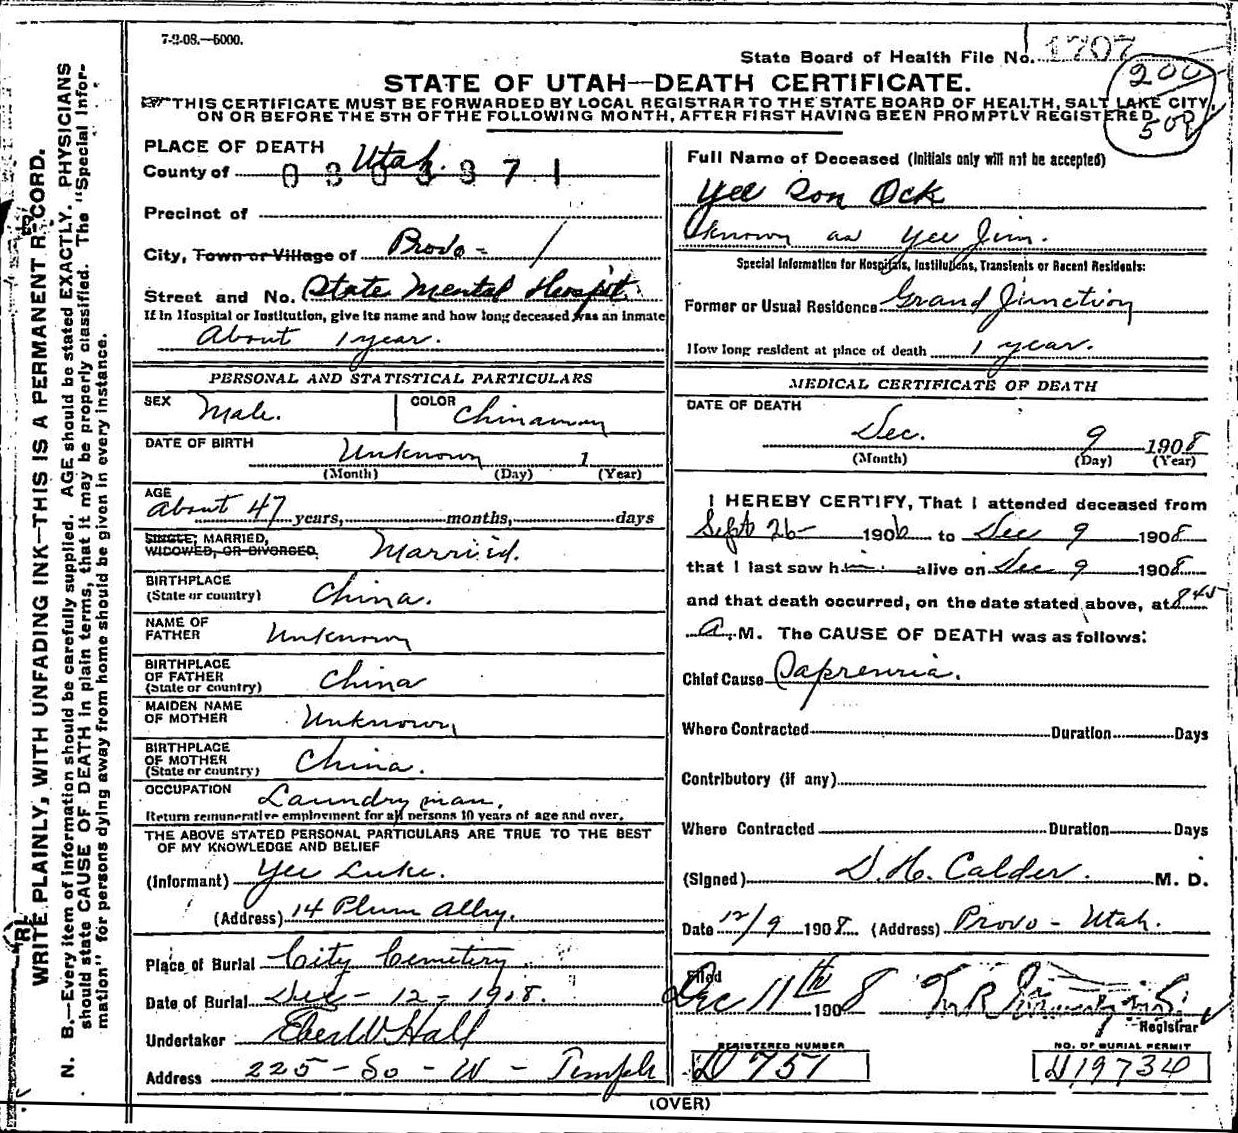 7-2-08.—5000.
State Board of Health File No. 1707
200
509
STATE OF UTAH—DEATH CERTIFICATE.
THIS CERTIFICATE MUST BE FORWARDED BY LOCAL REGISTRAR TO THE STATE BOARD OF HEALTH, SALT LAKE CITY,
ON OR BEFORE THE 5TH OF THE FOLLOWING MONTH, AFTER FIRST HAVING BEEN PROMPTLY REGISTERED
WRITE PLAINLY, WITH UNFADING INK—THIS IS A PERMANENT RECORD.
N. B.—Every item of information should be carefully supplied. AGE should be stated EXACTLY. PHYSICIANS
should state CAUSE OF DEATH in plain terms, that it may be properly classified. The "Special Infor-
mation" for persons dying away from home should be given in every instance.
PLACE OF DEATH
County of Utah
Precinct of
City, Town or Village of Provo -
Street and No. State Mental Hospit.
If in Hospital or Institution, give its name and how long deceased was an inmate
About 1 year.
PERSONAL AND STATISTICAL PARTICULARS
SEX Male.
COLOR Chinaman
DATE OF BIRTH Unknown 1
(Month) (Day) (Year)
AGE
About 47 years, months, days
SINGLE, MARRIED,
WIDOWED, OR DIVORCED. Married.
BIRTHPLACE
(State or country) China.
NAME OF
FATHER Unknown
BIRTHPLACE
OF FATHER
(State or country) China
MAIDEN NAME
OF MOTHER Unknown
BIRTHPLACE
OF MOTHER
(State or country) China.
OCCUPATION Laundry man.
Return remunerative employment for all persons 10 years of age and over.
THE ABOVE STATED PERSONAL PARTICULARS ARE TRUE TO THE BEST
OF MY KNOWLEDGE AND BELIEF
(Informant) Yee Luke.
(Address) 14 Plum Alley.
Place of Burial City Cemetery
Date of Burial Dec - 12 - 1908.
Undertaker Eber W Hall
Address 225 - So - W - Temple
Full Name of Deceased (Initials only will not be accepted)
Yee Son Ock
Known as Yee Jim.
Special Information for Hospitals, Institutions, Transients or Recent Residents:
Former or Usual Residence Grand Junction
How long resident at place of death 1 year.
MEDICAL CERTIFICATE OF DEATH
DATE OF DEATH
Dec. 9 1908
(Month) (Day) (Year)
I HEREBY CERTIFY, That I attended deceased from
Sept 26 - 1906 to Dec 9 1908
that I last saw him alive on Dec 9 1908
and that death occurred, on the date stated above, at 8 45
A. M. The CAUSE OF DEATH was as follows:
Chief Cause Sapremia.
Where Contracted Duration Days
Contributory (if any)
Where Contracted Duration Days
(Signed) D. H. Calder. M. D.
Date 12/9 1908 (Address) Provo - Utah.
Filed
Dec 11th 1908
Registrar
REGISTERED NUMBER
D 751
NO. OF BURIAL PERMIT
D19734
(OVER)